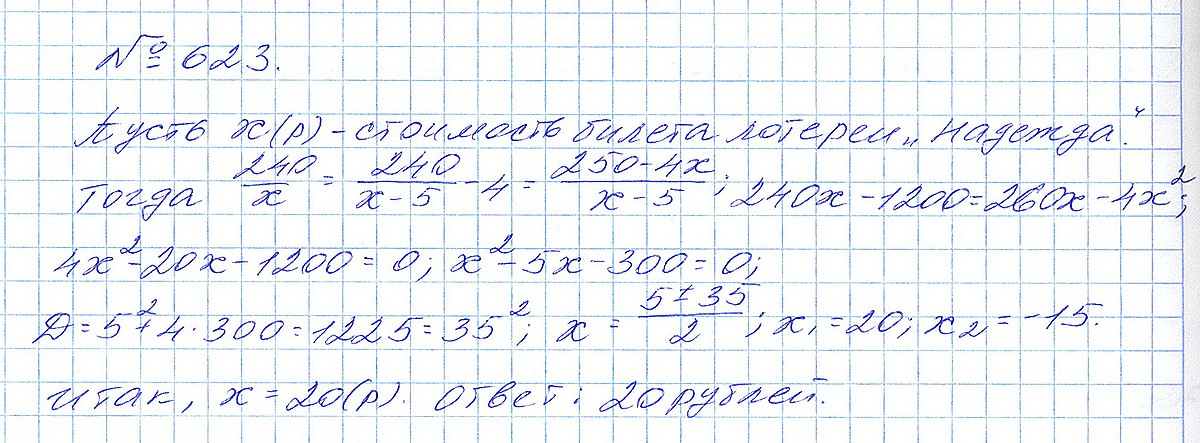 № 623.
Пусть x(р) - стоимость билета лотереи „Надежда“.
Тогда 240/x = 240/(x-5) - 4 = (250-4x)/(x-5); 240x - 1200 = 260x - 4x²;
4x² - 20x - 1200 = 0; x² - 5x - 300 = 0;
D = 5² + 4·300 = 1225 = 35²; x = (5±35)/2; x₁ = 20; x₂ = -15.
Итак, x = 20(р). Ответ: 20 рублей.